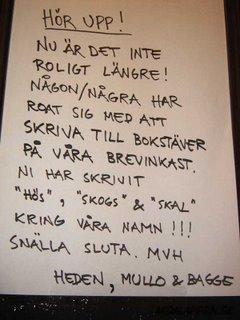 HÖR UPP!
NU ÄR DET INTE
ROLIGT LÄNGRE!
NÅGON/NÅGRA HAR
ROAT SIG MED ATT
SKRIVA TILL BOKSTÄVER
PÅ VÅRA BREVINKAST.
NI HAR SKRIVIT
"HÖS", "SKOGS" & "SKAL"
KRING VÅRA NAMN !!!
SNÄLLA SLUTA. MVH
HEDEN, MULLO & BAGGE